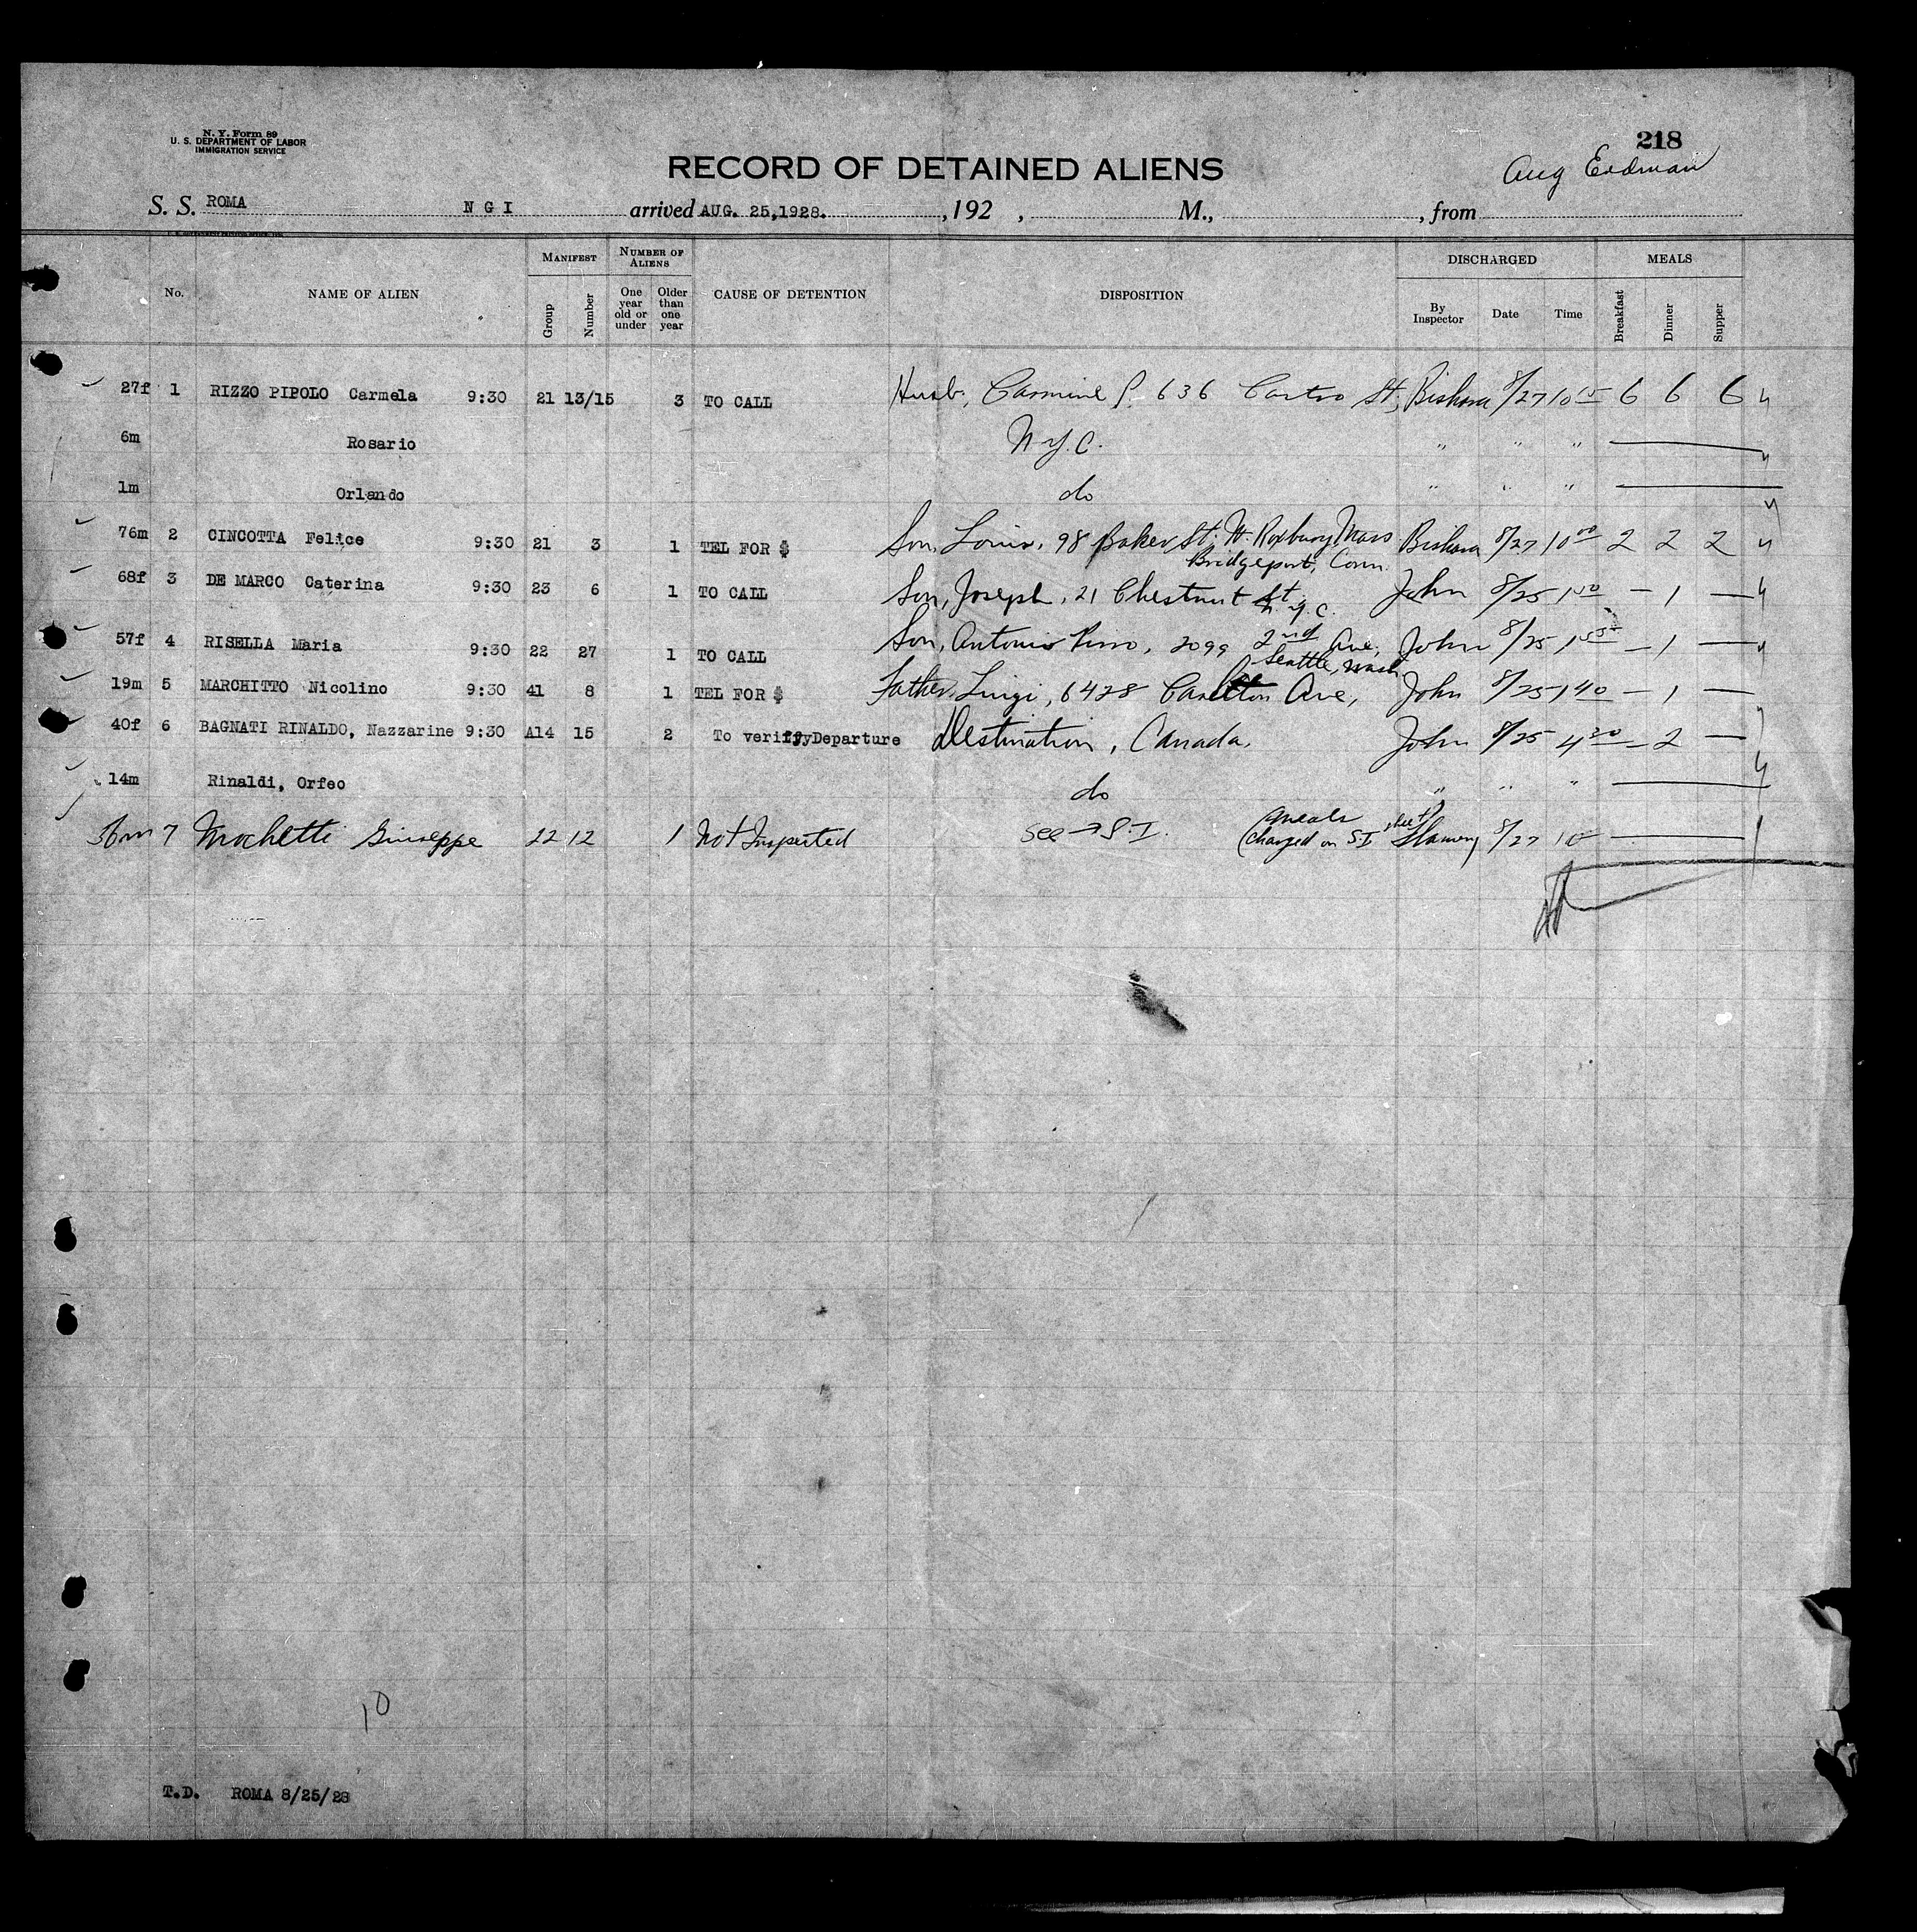 N. Y. Form 89
U. S. DEPARTMENT OF LABOR
IMMIGRATION SERVICE
218
RECORD OF DETAINED ALIENS
Aug Erdman
S. S. ROMA N G I arrived AUG. 25,1928. , 192 , M., , from
MANIFEST NUMBER OF ALIENS DISCHARGED MEALS
No. NAME OF ALIEN Group Number One year old or under Older than one year CAUSE OF DETENTION DISPOSITION By Inspector Date Time Breakfast Dinner Supper
27f 1 RIZZO PIPOLO Carmela 9:30 21 13/15 3 TO CALL Husb, Carmine P. 636 St, Bishara 8/27 10 15 6 6 6
6m Rosario N.Y.C. " " "
1m Orlando do " " "
76m 2 CINCOTTA Felice 9:30 21 3 1 TEL FOR $ Son, Louis, 98 Baker St. W. Roxbury, Mass Bishara 8/27 10 00 2 2 2
Bridgeport, Conn.
68f 3 DE MARCO Caterina 9:30 23 6 1 TO CALL Son, Joseph, 21 Chestnut St John 8/25 1 50 — 1 —
N.Y.C.
57f 4 RISELLA Maria 9:30 22 27 1 TO CALL Son, Antonio 2099 2nd Ave, John 8/25 1 55 — 1 —
Seattle, Wash
19m 5 MARCHITTO Nicolino 9:30 41 8 1 TEL FOR $ Father, Luigi, 6428 Carleton Ave, John 8/25 1 40 — 1 —
40f 6 BAGNATI RINALDO, Nazzarine 9:30 A14 15 2 To veriffyDeparture Destination, Canada, John 8/25 4 20 — 2 —
14m Rinaldi, Orfeo do " " "
7 Mochetti Giuseppe 22 12 1 Not Inspected See → S.I. (meals charged on S.I sheet) 8/27 10
10
T.D. ROMA 8/25/28